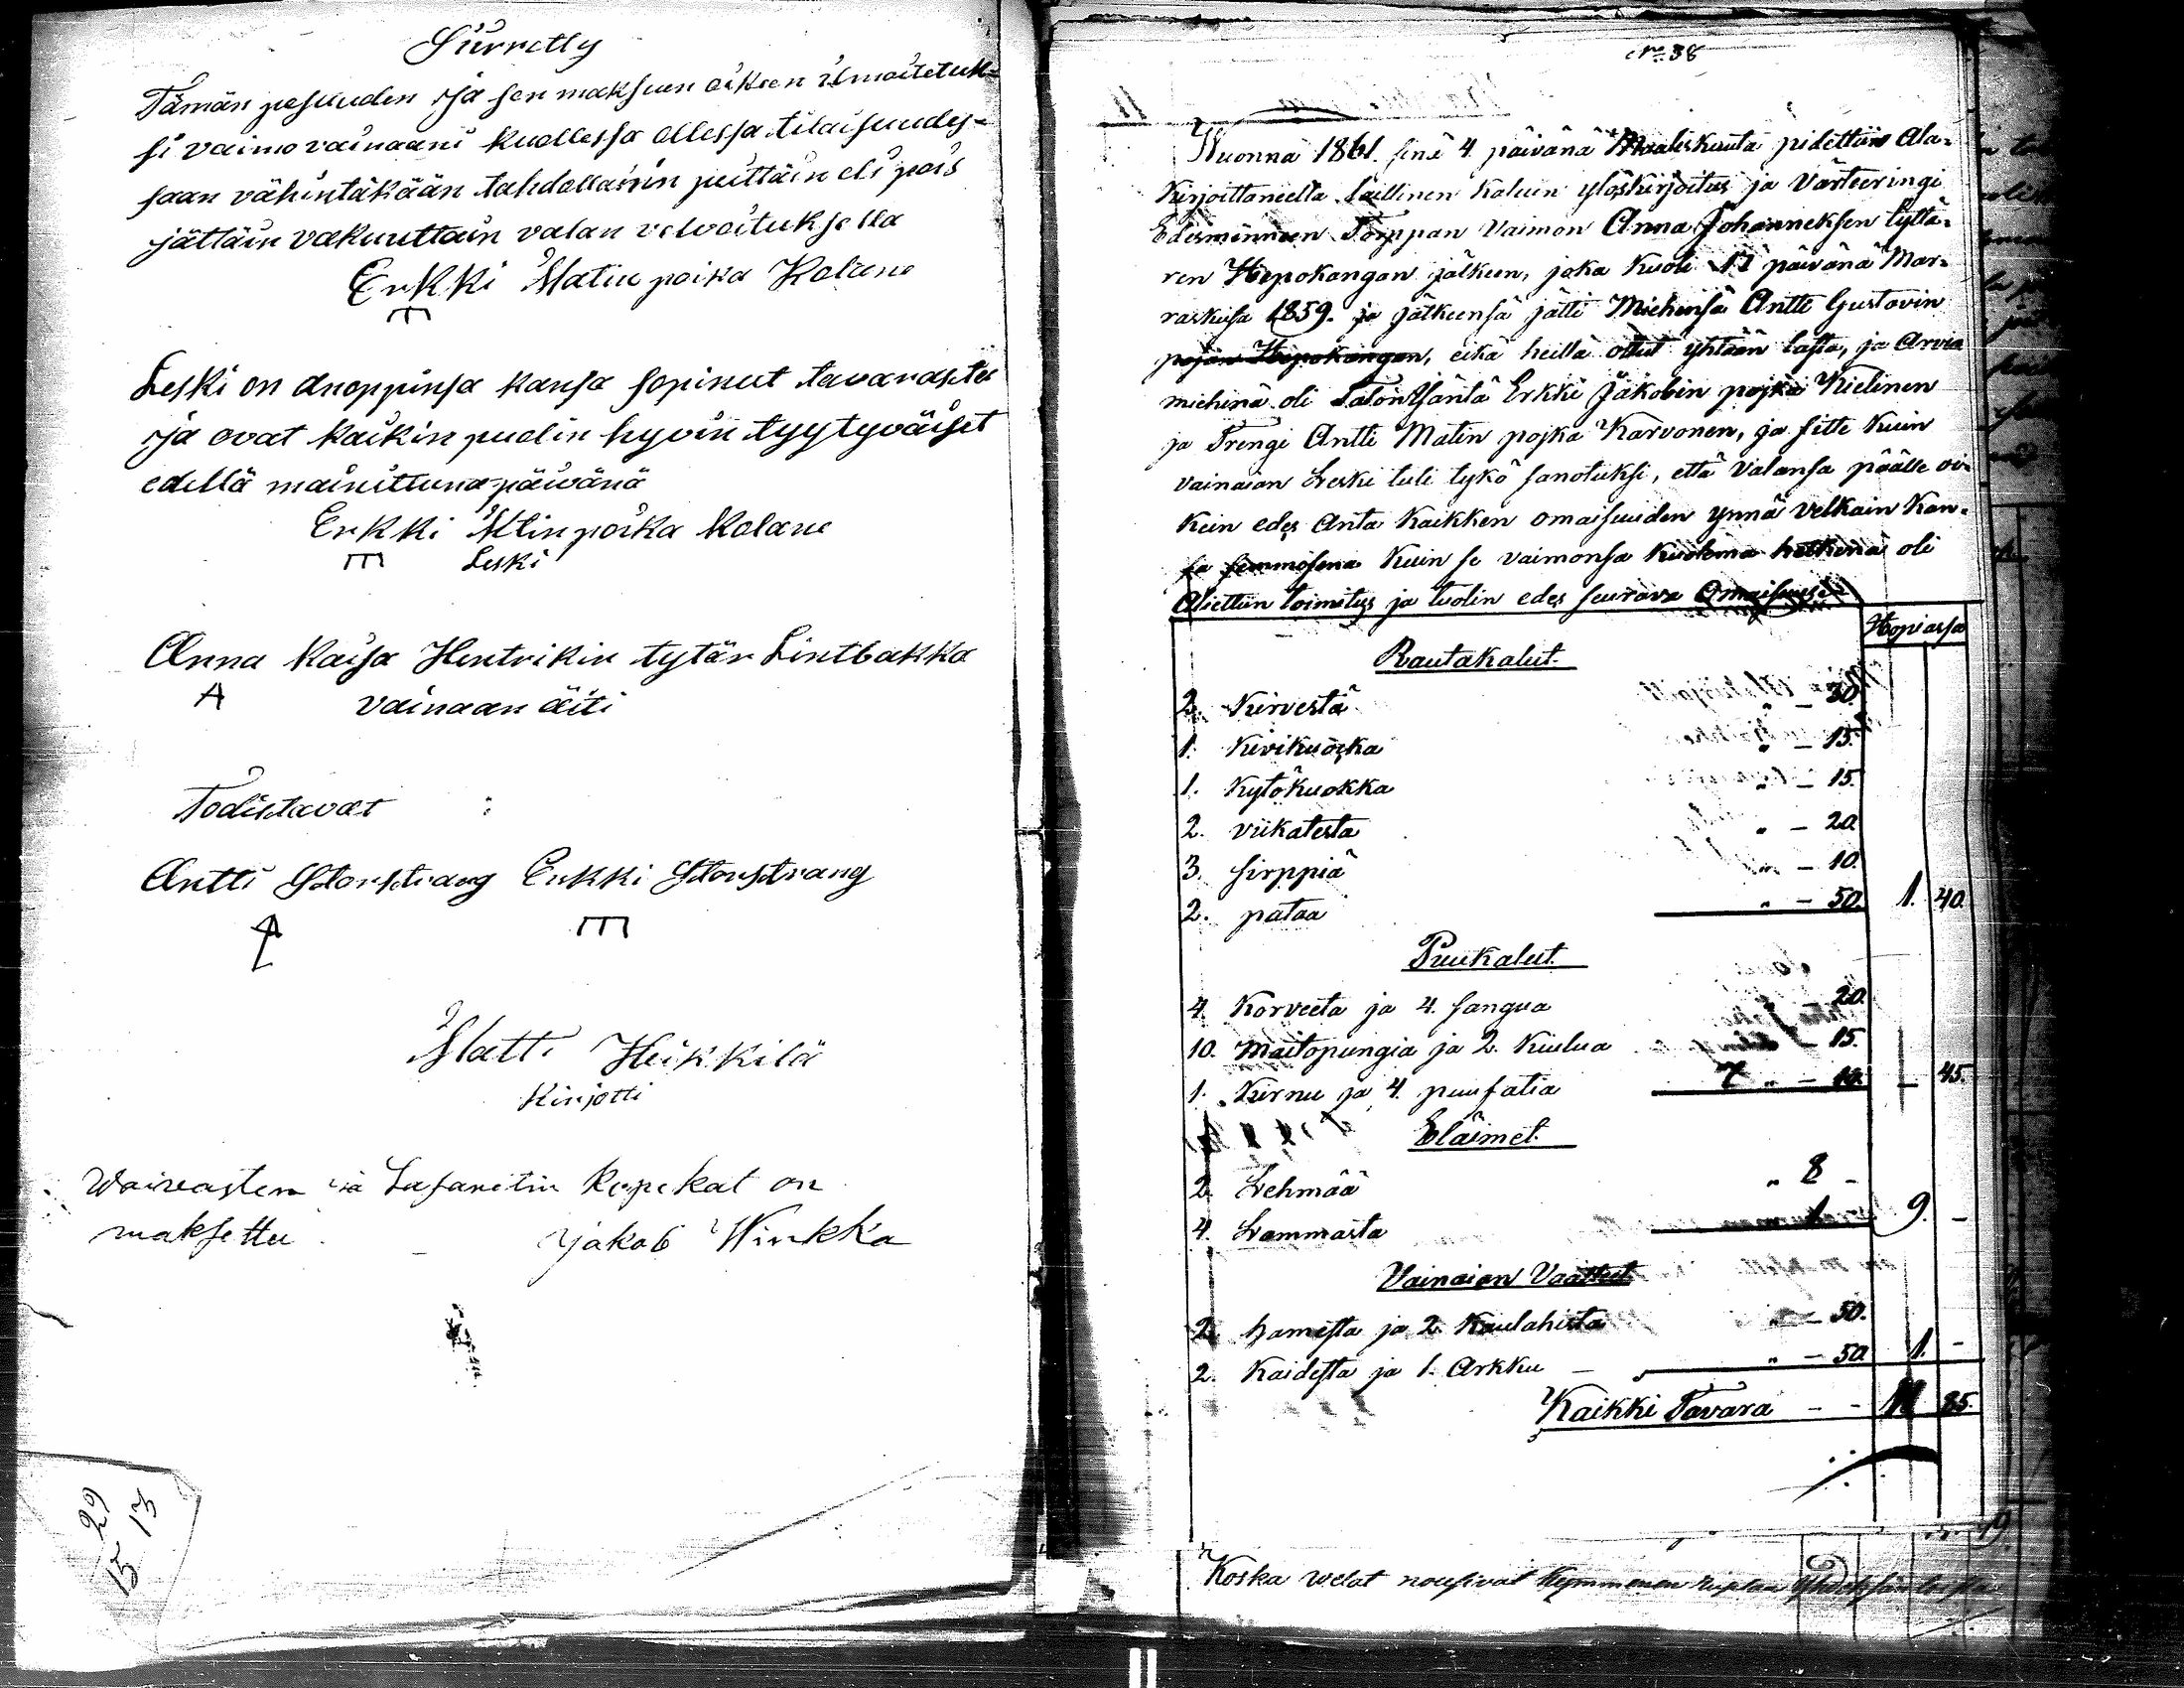 Siirretty
Tämän pesuuden ja sen maksuun oikeen ilmoitetuk-
si vaimo vainaani kuollessa ollessa tilaisuudes-
saan vähintäkään tahdollansin peittäin eli pois
jättäin vakuuttain valan velvoituksella
Erkki Matin poika Kolune
Leski on anoppinsa kansa sopinut tavaroista
ja ovat kaikin puolin hyvin tyytyväiset
edellä mainittuna päivänä
Erkki Mtin poika Kolane
Leski
Anna Kaisa Hentrikin tytär Lintbakka
A
vainaan äiti
Todistavat :
Antti Storstrang Erkki Storstrang
Matti Heikkilä
Kirjotti
Waivasten ja Lasaretin kopekat on
maksettu. Jakob Winkka
29
13
15
No 38
Wuonna 1861. sinä 4 päivänä Maaliskuuta pidettiin Ala-
kirjoittaneelta laillinen kaluin ylöskirjoitus ja Värteeringi
Edesmänneen Torppan Vaimon Anna Johanneksen tyttä-
ren Hepokangan jälkeen, joka kuoli 17 päivänä Mar-
raskusa 1859. ja jälkeensä jätti Miehensä Antti Gustavin
pojan Hepokangan, eikä heillä ollut yhtään lasta, ja Arvia
miehinä oli Talon Isäntä Erkki Jakobin pojka Kielinen
ja Trengi Antti Matin pojka Karvonen, ja sitte kuin
vainaian Leski tuli tykö sanotuksi, että Valansa päälle oi-
kein edes Anta kaikken omaisuuden ynnä velkain kan-
sa semmosena kuin se vaimonsa kuolema hetkenä oli
Alettiin toimitus ja tuotin edes seurava Omaisuus
Hopiassa
Rautakalut.
2. Kirvestä " - 30.
1. Kivikuokka " - 15.
1. Kytökuokka " - 15.
2. viikatesta " - 20.
3. sirppiä " - 10.
2. pataa " - 50. 1. 40.
Puukalut.
4. Korveeta ja 4. sangua - 20.
10. Maitopungia ja 2. Kiulua - 15.
1. Kirnu ja 4. puusatia " - 10. - 45.
Eläimet.
2. Lehmää " 8 -
4. Lammasta 1 - 9. -
Vainaian Vaatteet
2. hamesta ja 2. Kaulahusta " - 50.
2. Kaidesta ja 1. Arkku - " - 50. 1. -
Kaikki Tavara - - 11 85.
Koska welat nousivat kymmenen ruplan